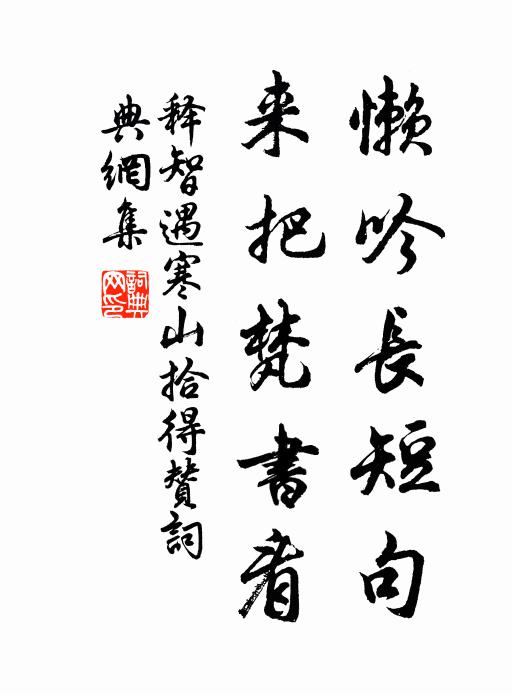 懶吟長短句
来把梵書看
释智遇寒山拾得賛詞
典網集
詞典网印